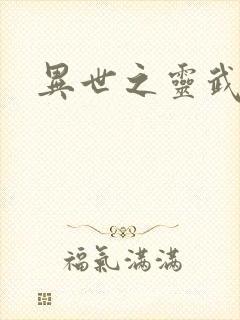 異世之靈武
福氣滿滿